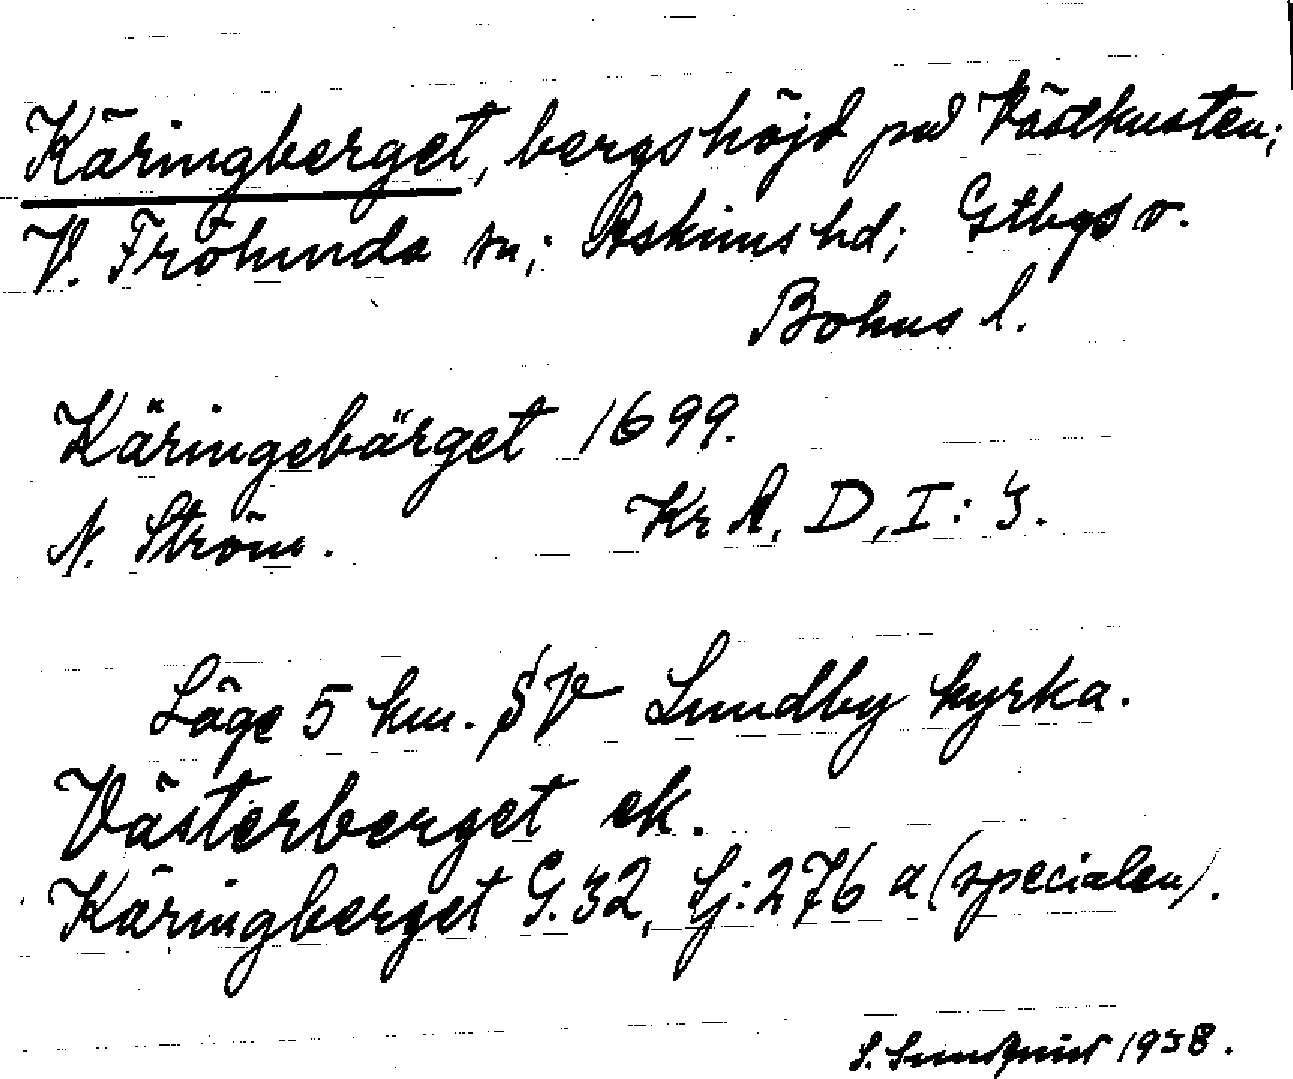 Käringberget, bergshöjd på Västkusten;
V. Frölunda sn; Askims hd; Gtbgs o.
Bohus l.
Käringebärget 1699.
N. Ström. KrA, D, I: 3.
Läge 5 km. SV Lundby kyrka.
Västerberget ek.
Käringberget G. 32, Sj: 276 a (specialen).
S. Lundquist 1938.